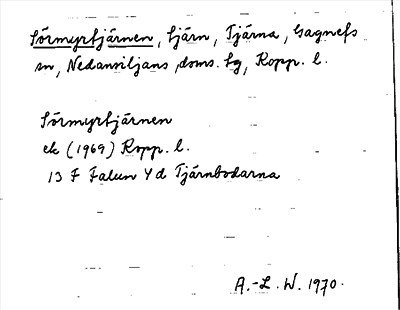 Sörmyrtjärnen, tjärn, Tjärna, Gagnefs
sn, Nedansiljans doms. tg, Kopp. l.
Sörmyrtjärnen
ek (1969) Kopp. l.
13 F Falun Y d Tjärnbodarna
A.-L. W. 1970.